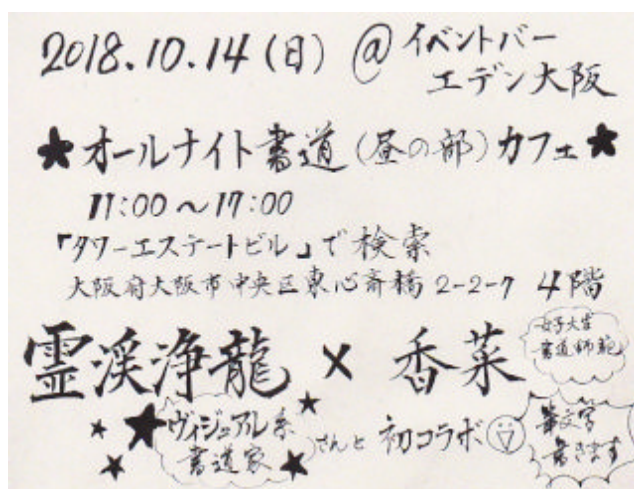 2018.10.14(日) @イベントバー
エデン大阪
★オールナイト書道(昼の部)カフェ★
11:00〜17:00
「タワーエステートビル」で検索
大阪府大阪市中央区東心斎橋2-2-7 4階
霊渓浄龍×香菜
女子大生
書道師範
ヴィジュアル系
書道家
さんと初コラボ
筆文字
書きます